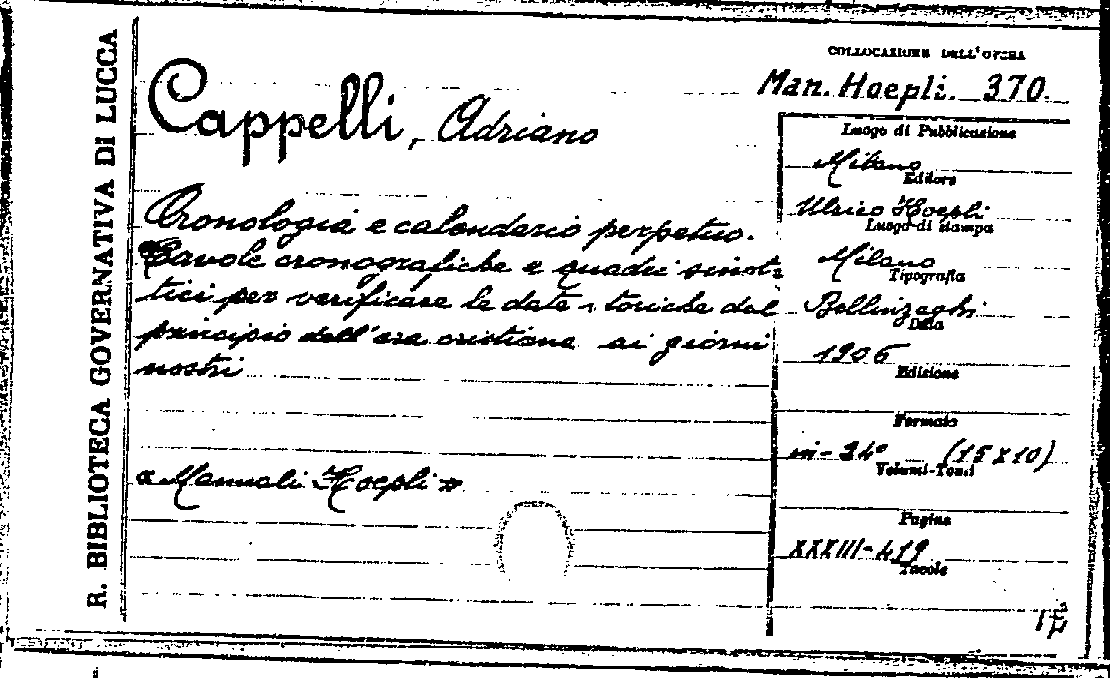 R. BIBLIOTECA GOVERNATIVA DI LUCCA
COLLOCAZIONE DELL'OPERA
Man. Hoepli. 370.
Cappelli, Adriano
Cronologia e calendario perpetuo.
Tavole cronografiche e quadri sinot
tici per verificare le date storiche dal
principio dell'era cristiana ai giorni
nostri
« Manuali Hoepli »
Luogo di Pubblicazione
Milano
Editore
Ulrico Hoepli
Luogo di stampa
Milano
Tipografia
Bellinzaghi
Data
1906
Edizione
Formato
in-24° (15x10)
Volumi-Tomi
Pagine
XXXIII-419
Tavole